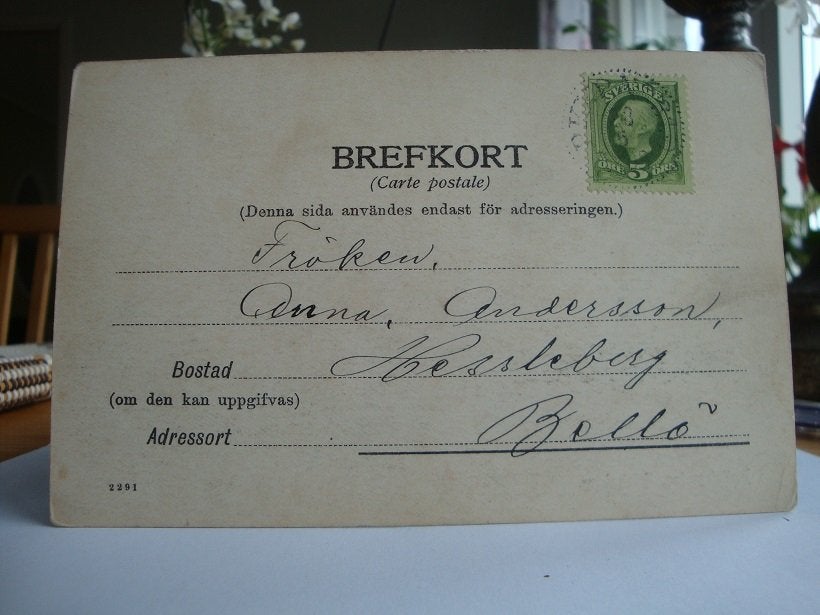 SVERIGE
5
BREFKORT
(Carte postale)
(Denna sida användes endast för adresseringen.)
Fröken,
Anna, Andersson,
Bostad Hessleberg
(om den kan uppgifvas)
Adressort Bellö
2291